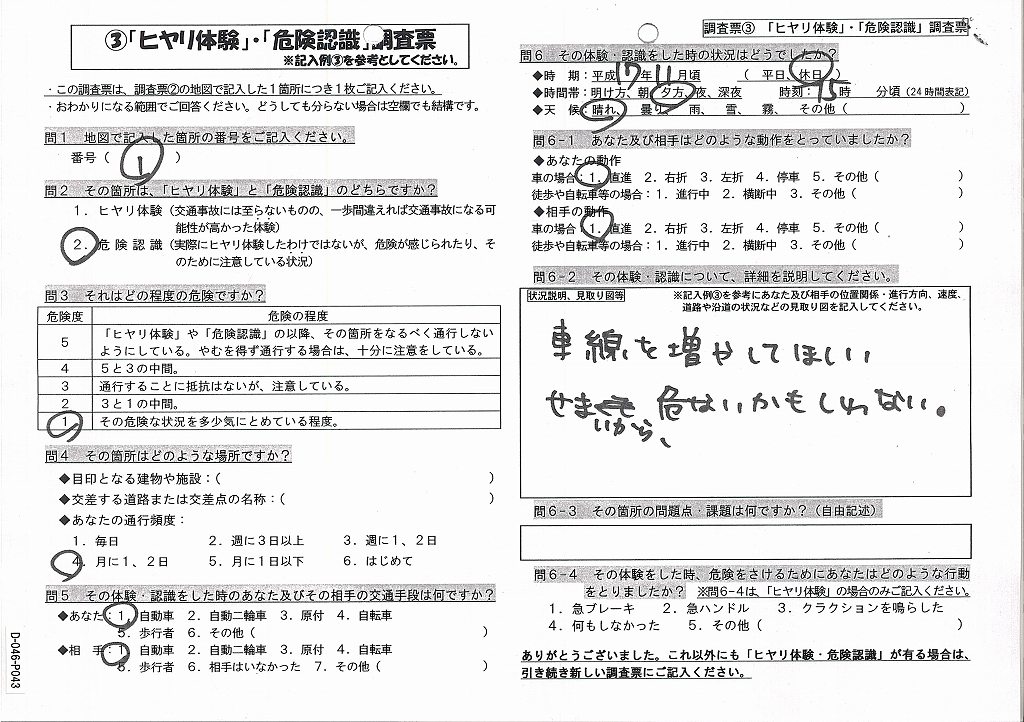 ③「ヒヤリ体験」・「危険認識」調査票
※記入例③を参考としてください。
・この調査票は、調査票②の地図で記入した１箇所につき１枚ご記入ください。
・おわかりになる範囲でご回答ください。どうしても分らない場合は空欄でも結構です。
問１ 地図で記入した箇所の番号をご記入ください。
番号（ 1 ）
問２ その箇所は、「ヒヤリ体験」と「危険認識」のどちらですか？
１．ヒヤリ体験（交通事故には至らないものの、一歩間違えれば交通事故になる可
能性が高かった体験）
２．危険認識（実際にヒヤリ体験したわけではないが、危険が感じられたり、そ
のために注意している状況）
問３ それはどの程度の危険ですか？
危険度 危険の程度
５ 「ヒヤリ体験」や「危険認識」の以降、その箇所をなるべく通行しない
ようにしている。やむを得ず通行する場合は、十分に注意をしている。
４ ５と３の中間。
３ 通行することに抵抗はないが、注意している。
２ ３と１の中間。
１ その危険な状況を多少気にとめている程度。
問４ その箇所はどのような場所ですか？
◆目印となる建物や施設：（ ）
◆交差する道路または交差点の名称：（ ）
◆あなたの通行頻度：
１．毎日 ２．週に３日以上 ３．週に１、２日
４．月に１、２日 ５．月に１日以下 ６．はじめて
問５ その体験・認識をした時のあなた及びその相手の交通手段は何ですか？
◆あなた：１．自動車 ２．自動二輪車 ３．原付 ４．自転車
５．歩行者 ６．その他（ ）
◆相 手：１．自動車 ２．自動二輪車 ３．原付 ４．自転車
５．歩行者 ６．相手はいなかった ７．その他（ ）
D-046-P043
調査票③ 「ヒヤリ体験」・「危険認識」調査票
問６ その体験・認識をした時の状況はどうでしたか？
◆時 期：平成 17 年 11 月頃 （ 平日、休日 ）
◆時間帯：明け方、朝、夕方、夜、深夜 時刻： 15 時 分頃（24時間表記）
◆天 候：晴れ、 曇り、 雨、 雪、 霧、 その他（ ）
問６-１ あなた及び相手はどのような動作をとっていましたか？
◆あなたの動作
車の場合：１．直進 ２．右折 ３．左折 ４．停車 ５．その他（ ）
徒歩や自転車等の場合：１．進行中 ２．横断中 ３．その他（ ）
◆相手の動作
車の場合：１．直進 ２．右折 ３．左折 ４．停車 ５．その他（ ）
徒歩や自転車等の場合：１．進行中 ２．横断中 ３．その他（ ）
問６-２ その体験・認識について、詳細を説明してください。
状況説明、見取り図等 ※記入例③を参考にあなた及び相手の位置関係・進行方向、速度、
道路や沿道の状況などの見取り図を記入してください。
車線を増やしてほしい
せま 危ないかもしれない。
いから、
問６-３ その箇所の問題点・課題は何ですか？（自由記述）
問６-４ その体験をした時、危険をさけるためにあなたはどのような行動
をとりましたか？ ※問６-４は、「ヒヤリ体験」の場合のみご記入ください。
１．急ブレーキ ２．急ハンドル ３．クラクションを鳴らした
４．何もしなかった ５．その他（ ）
ありがとうございました。これ以外にも「ヒヤリ体験・危険認識」が有る場合は、
引き続き新しい調査票にご記入ください。